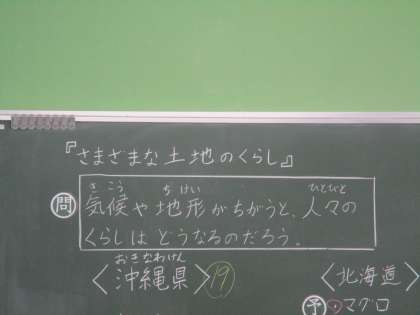 『さまざまな土地のくらし』
問
きこう ちけい ひとびと
気候や地形がちがうと、人々の
くらしはどうなるのだろう。
おきなわけん
〈沖縄県〉19 〈北海道〉
予 マグロ